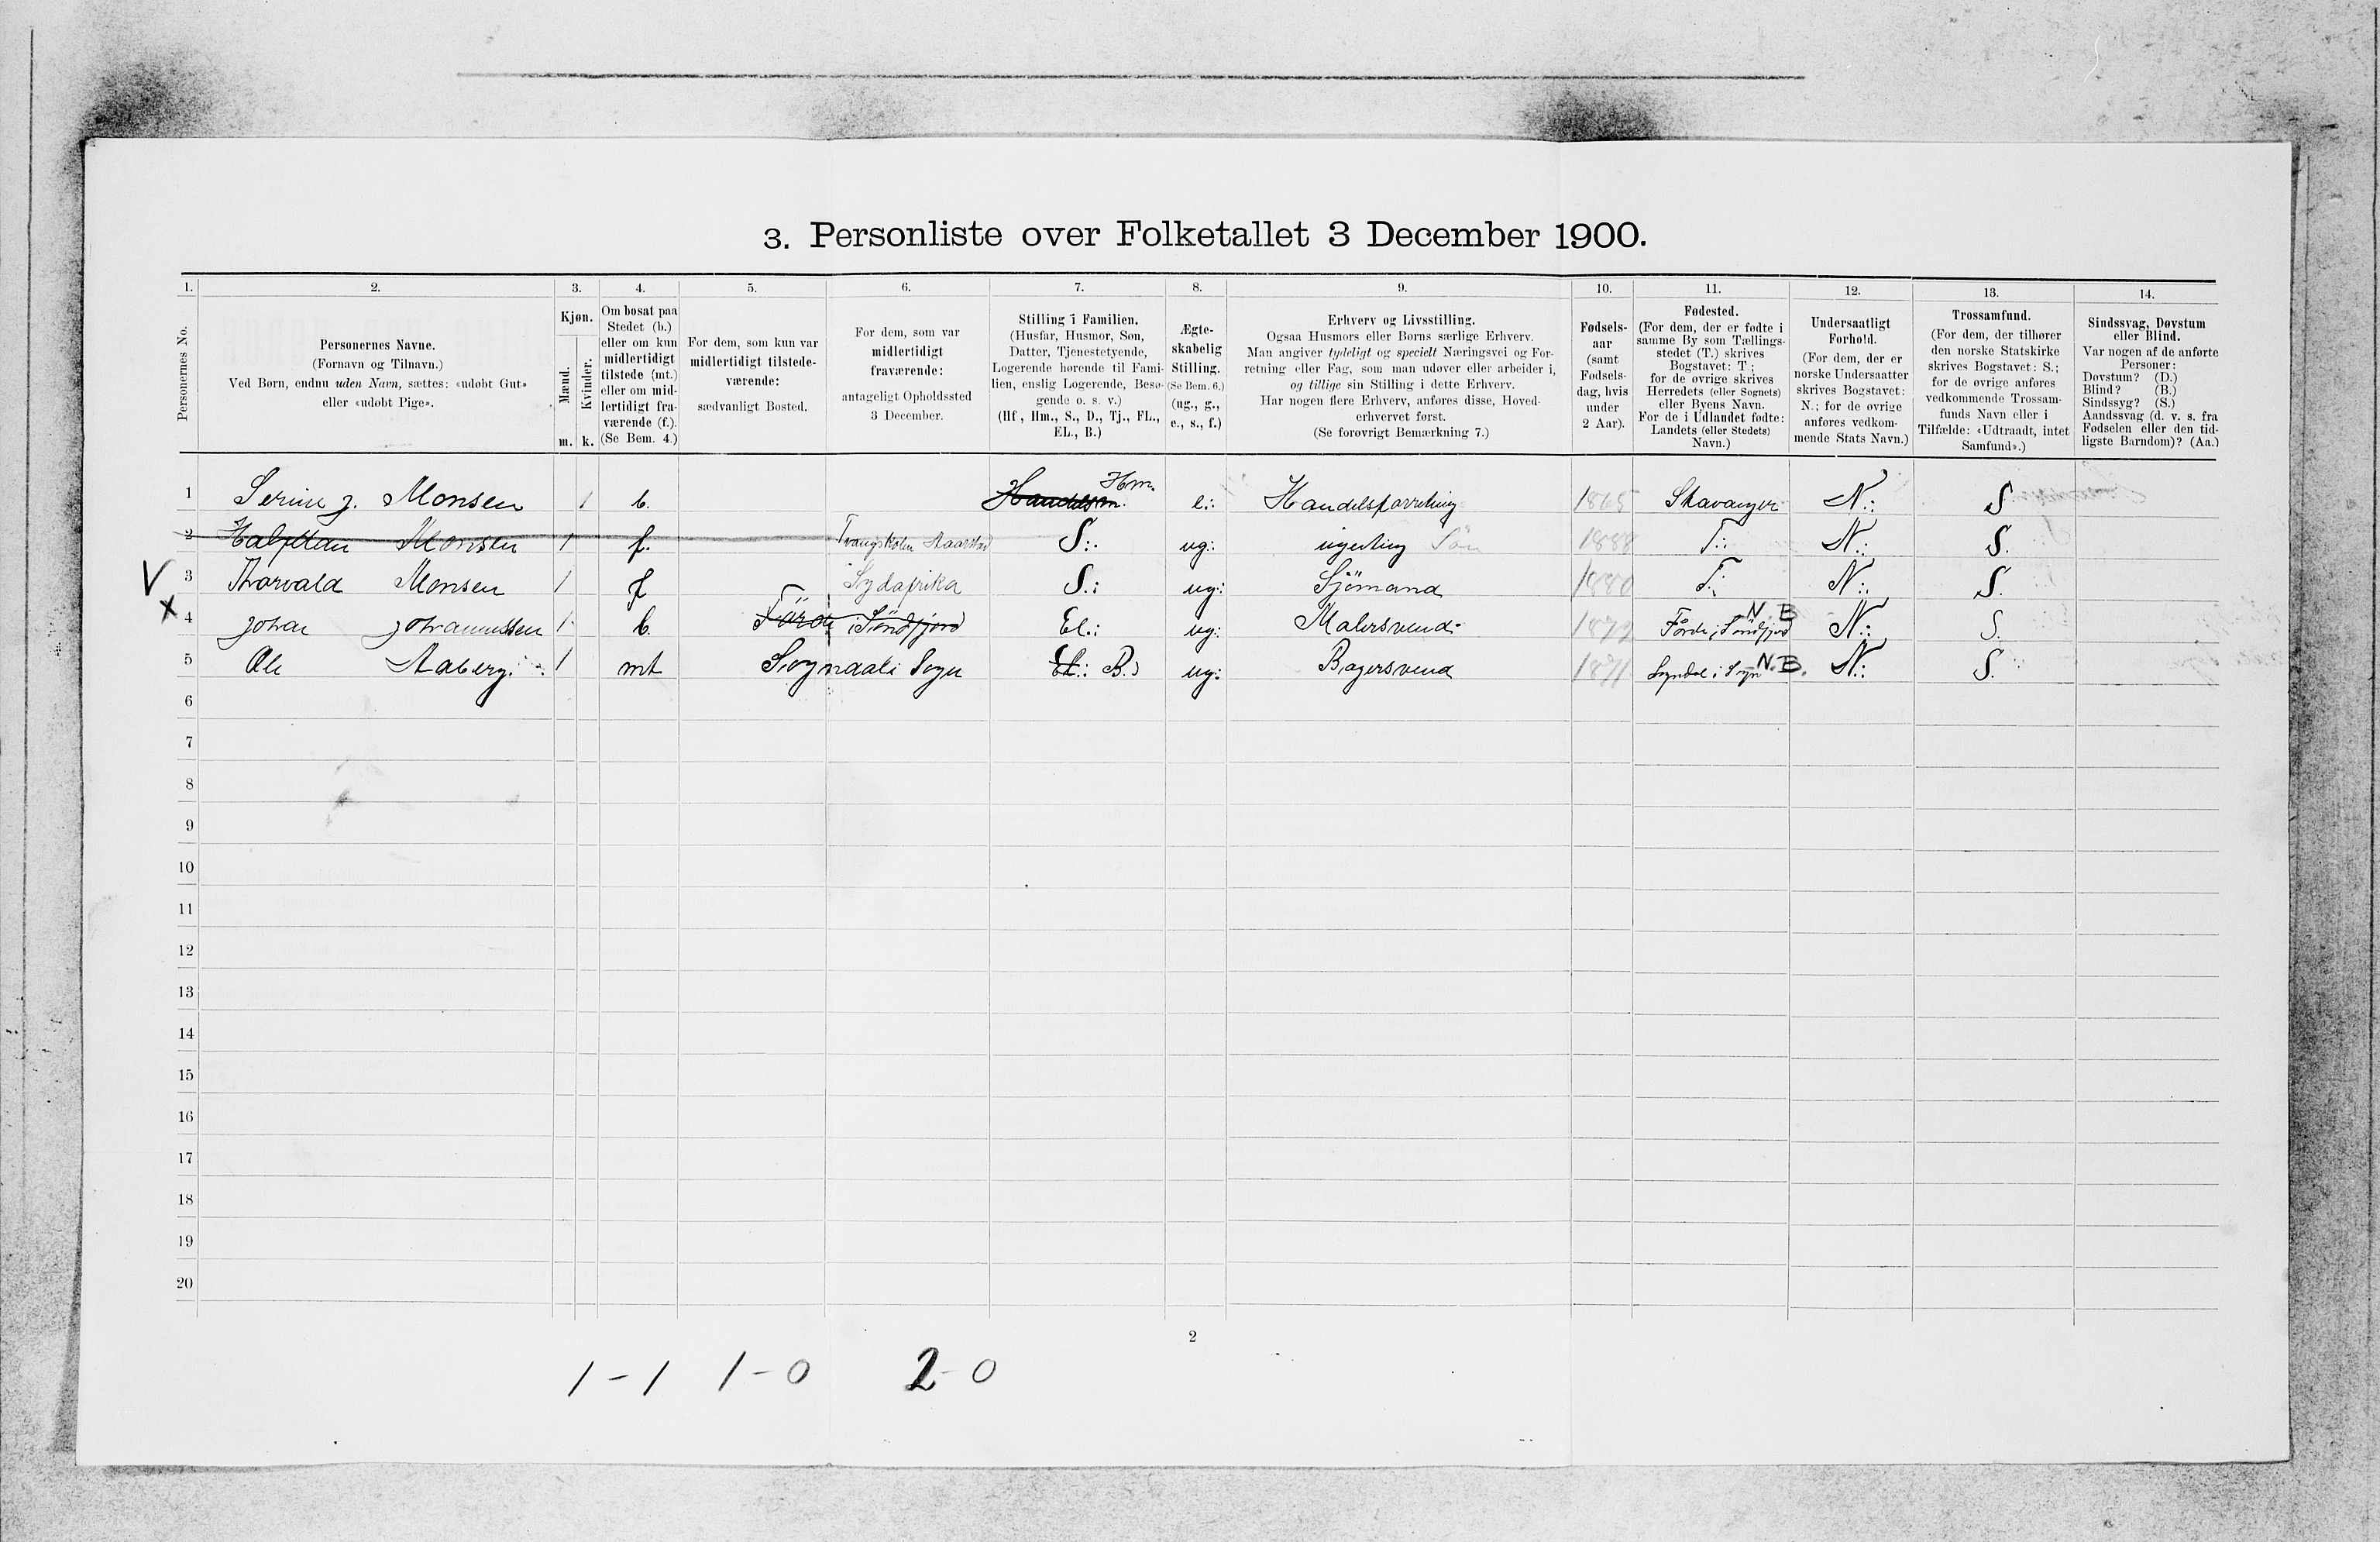 3. Personliste over Folketallet 3 December 1900.
1. 2. 3. 4. 5. 6. 7. 8. 9. 10. 11. 12. 13. 14.
Personernes No.
Personernes Navne.
(Fornavn og Tilnavn.)
Ved Børn, endnu uden Navn, sættes: «udøbt Gut»
eller «udøbt Pige».
Kjøn.
Mænd.
Kvinder.
m. k.
Om bosat paa
Stedet (b.)
eller om kun
midlertidigt
tilstede (mt.)
eller om mid-
lertidigt fra-
værende (f.).
(Se Bem. 4.)
For dem, som kun var
midlertidigt tilstede-
værende:
sædvanligt Bosted.
For dem, som var
midlertidigt
fraværende:
antageligt Opholdssted
3 December.
Stilling i Familien.
(Husfar, Husmor, Søn,
Datter, Tjenestetyende,
Logerende hørende til Fami-
lien, enslig Logerende, Besø-
gende o. s. v.)
(Hf., Hm., S., D., Tj., FL.,
EL., B.)
Ægte-
skabelig
Stilling.
(Se Bem. 6.)
(ug., g.,
e., s., f.)
Erhverv og Livsstilling.
Ogsaa Husmors eller Børns særlige Erhverv.
Man angiver tydeligt og specielt Næringsvei og For-
retning eller Fag, som man udøver eller arbeider i,
og tillige sin Stilling i dette Erhverv.
Har nogen flere Erhverv, anføres disse, Hoved-
erhvervet først.
(Se forøvrigt Bemærkning 7.)
Fødsels-
aar
(samt
Fødsels-
dag, hvis
under
2 Aar).
Fødested.
(For dem, der er fødte i
samme By som Tællings-
stedet (T.) skrives
Bogstavet: T;
for de øvrige skrives
Herredets (eller Sognets)
eller Byens Navn.
For de i Udlandet fødte:
Landets (eller Stedets)
Navn.)
Undersaatligt
Forhold.
(For dem, der er
norske Undersaatter
skrives Bogstavet:
N.; for de øvrige
anføres vedkom-
mende Stats Navn.)
Trossamfund.
(For dem, der tilhører
den norske Statskirke
skrives Bogstavet: S.;
for de øvrige anføres
vedkommende Trossam-
funds Navn eller i
Tilfælde: «Udtraadt, intet
Samfund».)
Sindssvag, Døvstum
eller Blind.
Var nogen af de anførte
Personer:
Døvstum? (D.)
Blind? (B.)
Sindssyg? (S.)
Aandssvag (d. v. s. fra
Fødselen eller den tid-
ligste Barndom)? (Aa.)
1 Serine J. Monsen 1 b. Hm. e.: Handelsforretning 1865 Stavanger N.: S
2 Halfdan Monsen 1 f. Tvangskolen S.: ug.: Søn 1888 T.: N.: S.
V 3 Thorvald Monsen 1 f Sydafrika S.: ug: Sjömand 1880 T.: N.: S.
x 4 Johan Johannessen 1 b. Förde i Söndfjord El.: ug: Malersvend 1872 Förde i Söndfjord N B N.: S.
5 Ole Aaberg 1 mt Sogndal i Sogn El.: B.) ug: Bagersvend 1871 Sogndal i Sogn N.B. N.: S.
6
7
8
9
10
11
12
13
14
15
16
17
18
19
20
2
1 - 1 1 - 0 2 - 0